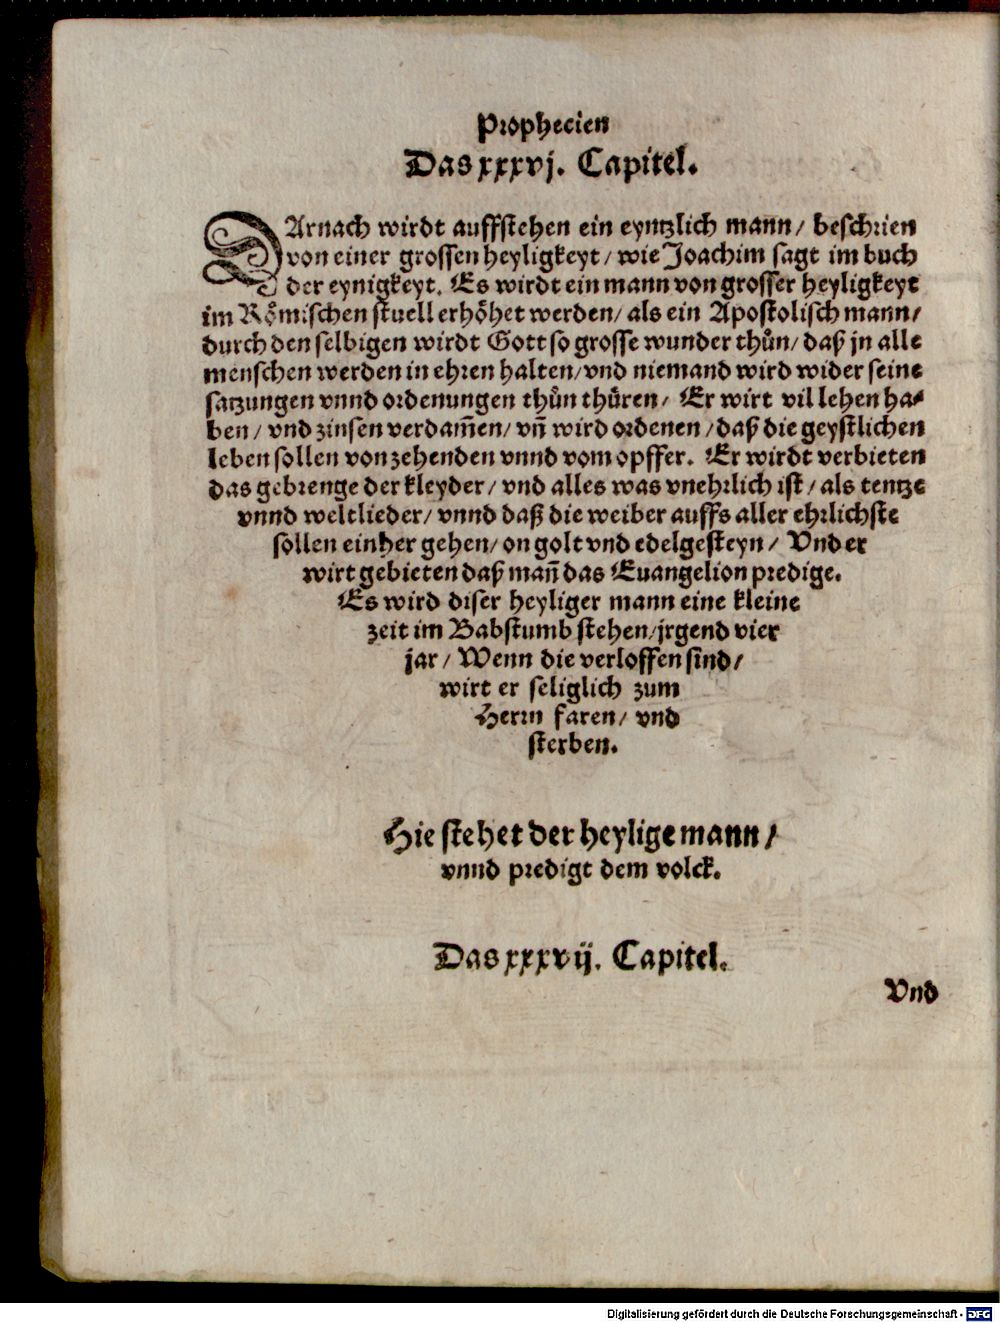 Prophecien
Das xxxvj. Capitel.
DArnach wirdt auffstehen ein eyntzlich mann/ beschrien
von einer grossen heyligkeyt/ wie Joachim sagt im buch
der eynigkeyt. Es wirdt ein mann von grosser heyligkeyt
im Roͤmischen stuell erhoͤhet werden/ als ein Apostolisch mann/
durch den selbigen wirdt Gott so grosse wunder thuͦn/ daß jn alle
menschen werden in ehren halten/ vnd niemand wird wider seine
satzungen vnnd ordenungen thuͦn thuͤren/ Er wirt vil lehen ha⸗
ben/ vnd zinsen verdam̃en/ vñ wird ordenen/ daß die geystlichen
leben sollen von zehenden vnnd vom opffer. Er wirdt verbieten
das gebrenge der kleyder/ vnd alles was vnehrlich ist/ als tentze
vnnd weltlieder/ vnnd daß die weiber auffs aller ehrlichste
sollen einher gehen/ on golt vnd edelgesteyn/ Vnd er
wirt gebieten daß mañ das Euangelion predige.
Es wird diser heyliger mann eine kleine
zeit im Babstumb stehen/ jrgend vier
jar/ Wenn die verloffen sind/
wirt er seliglich zum
Herrn faren/ vnd
sterben.
Hie stehet der heylige mann/
vnnd predigt dem volck.
Das xxxvij. Capitel.
Vnd
Digitalisierung gefördert durch die Deutsche Forschungsgemeinschaft - DFG